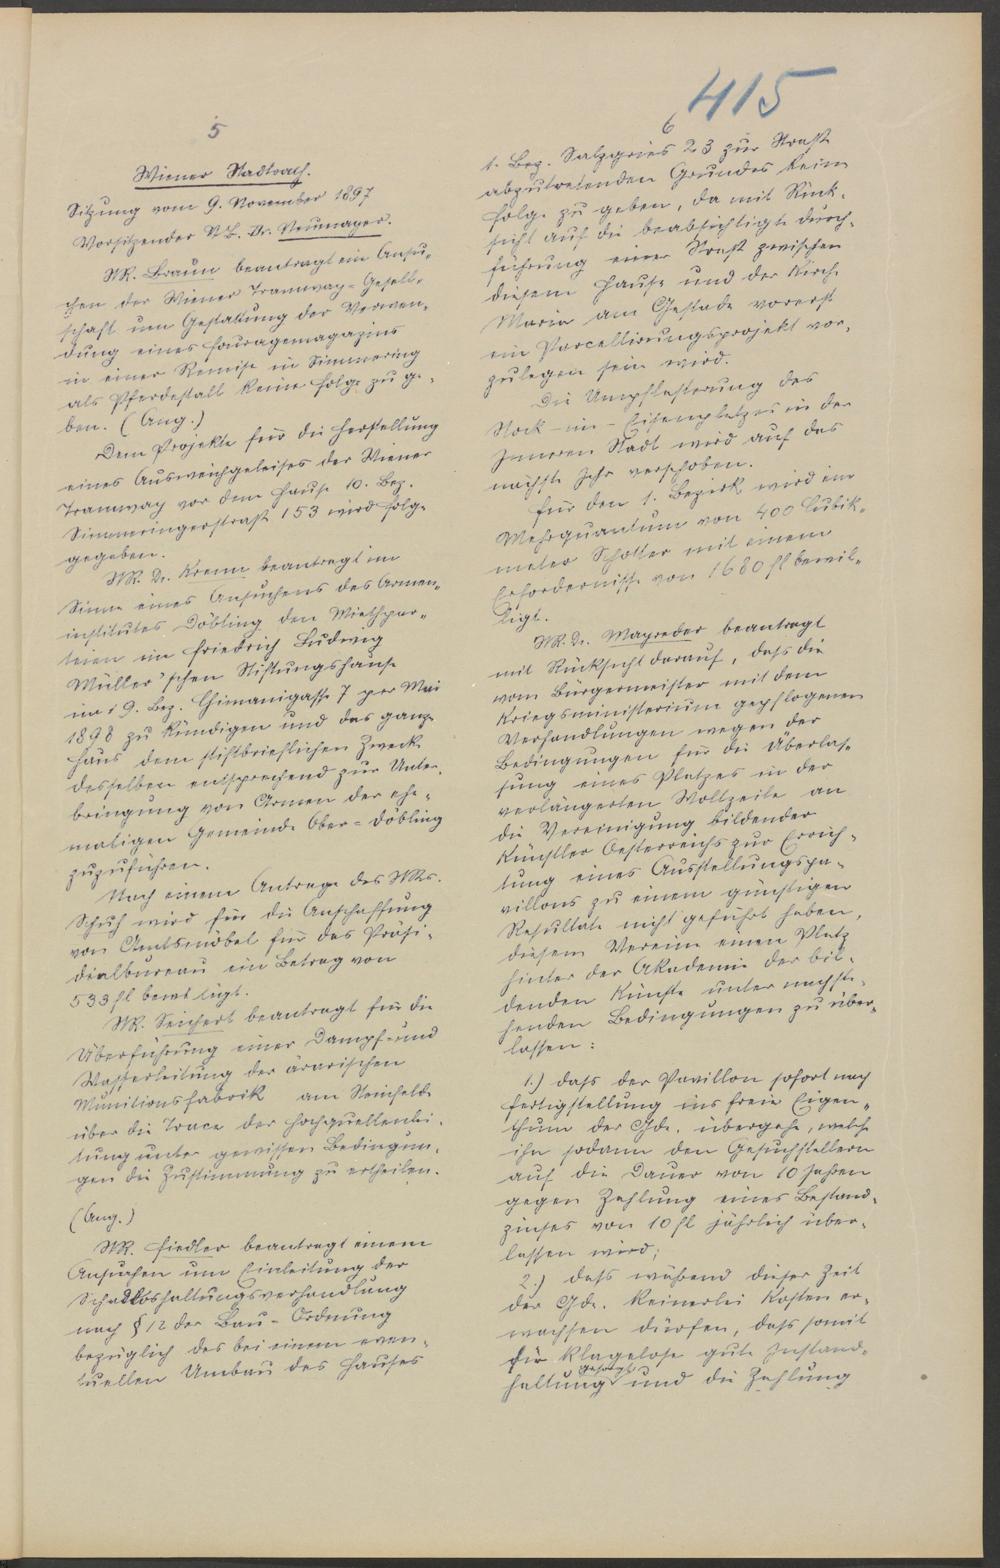 415
5
Wiener Stadtrath.
Sitzung vom 9. November 1897
Vorsitzender VB. Dr. Neumayer.
StR. Braun beantragt ein Ansu-
chen der Wiener Tramway-Gesell-
schaft um Gestattung der Verwen-
dung eines Fouragemagazins
in einer Remise in Simmering
als Pferdestall keine Folge zu ge-
ben. (Ang.)
Dem Projekte für die Herstellung
eines Ausweichgeleises der Wiener
Tramway vor dem Hause 10. Bez.
Simmeringerstraße 153 wird Folge
gegeben.
StR. Dr. Krenn beantragt im
Sinne eines Ansuchens des Armen-
institutes Döbling den Miethpar-
teien im Friedrich Ludwig
Müller'schen Stiftungshause
im 19. Bez. Chimanigasse 7 per Mai
1898 zu kündigen und das ganze
Haus dem stiftbrieflichen Zwecke
desselben entsprechend zur Unter-
bringung von Armen der ehe-
maligen Gemeinde Ober-Döbling
zuzuführen.
Nach einem Antrage des StRs.
Schuh wird für die Anschaffung
von Amtsmöbel für das Präsi-
dialbureau ein Betrag von
533 fl bewilligt.
StR. Seichert beantragt für die
Überführung einer Dampf- und
Wasserleitung der ärarischen
Munitionsfabrik am Steinfelde
über die Trace der Hochquellenlei-
tung unter gewissen Bedingun-
gen die Zustimmung zu ertheilen.
(Ang.)
StR. Fiedler beantragt einem
Ansuchen um Einleitung der
Schadloshaltungsverhandlung
nach § 12 der Bau-Ordnung
bezüglich des bei einem even-
tuellen Umbau des Hauses
6
1. Bez. Salzgries 23 zur Straße
abzutretenden Grundes keine
Folge zu geben, da mit Rück-
sicht auf die beabsichtigte Durch-
führung einer Straße zwischen
diesem Hause und der Kirche
Maria am Gestade vorerst
ein Parcellirungsprojekt vor-
zulegen sein wird.
Die Umpflasterung des
Stock-im-Eisenplatzes in der
Inneren Stadt wird auf das
nächste Jahr verschoben.
Für den 1. Bezirk wird ein
Mehrquantum von 400 Cubik-
meter Schotter mit einem
Erfordernisse von 1680 fl bewil-
ligt.
StR. Dr. Mayreder beantragt
mit Rücksicht darauf, dass die
vom Bürgermeister mit dem
Kriegsministerium gepflogenen
Verhandlungen wegen der
Bedingungen für die Überlas-
sung eines Platzes in der
verlängerten Wollzeile an
die Vereinigung bildender
Künstler Oesterreichs zur Errich-
tung eines Ausstellungspa-
villons zu einem günstigen
Resultate nicht geführt haben,
diesem Vereine einen Platz
hinter der Akademie der bil-
denden Künste unter nachste-
henden Bedingungen zu über-
lassen:
1.) dass der Pavillon sofort nach
Fertigstellung ins freie Eigen-
thum der Gde. übergehe, welche
ihn sodann den Gesuchstellern
auf die Dauer von 10 Jahren
gegen Zahlung eines Bestand-
zinses von 10 fl jährlich über-
lassen wird;
2.) dass während dieser Zeit
der Gde. keinerlei Kosten er-
wachsen dürfen, dass somit
für klaglose gute Instand-
haltung gesorgt und die Zahlung